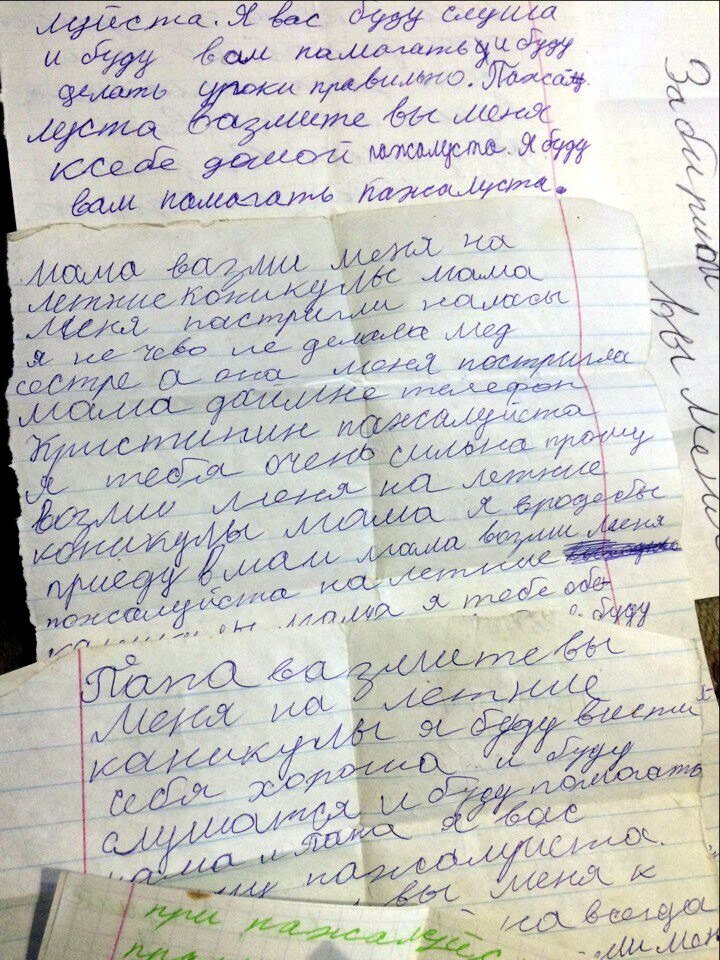 луйста. Я вас буду слуша
и буду вам памагать и буду
делать уроки правильно. Пажа
луста вазмите вы меня
ксебе дамой пажалуста. Я буду
вам памагать пажалуста.
Мама вазми меня на
летние коникулы мама
меня пастригли наласы
я не чево не делала мед
сестре а она меня постригла
мама даймне телефон
Кристинин пажалуйста
я тебя очень сильна прошу
возми меня на летние
каникулы мама я вродебы
приеду в маи мама возми меня
пожалуйста на летние
мама я тебе обе
буду
Папа вазмите вы
меня на летние
каникулы я буду вести
себя хороша и буду
слушатся и буду помогать
мама и папа я вас
пажалуста.
вы меня к
на всегда
при пажалуйс
Забири
вы меня